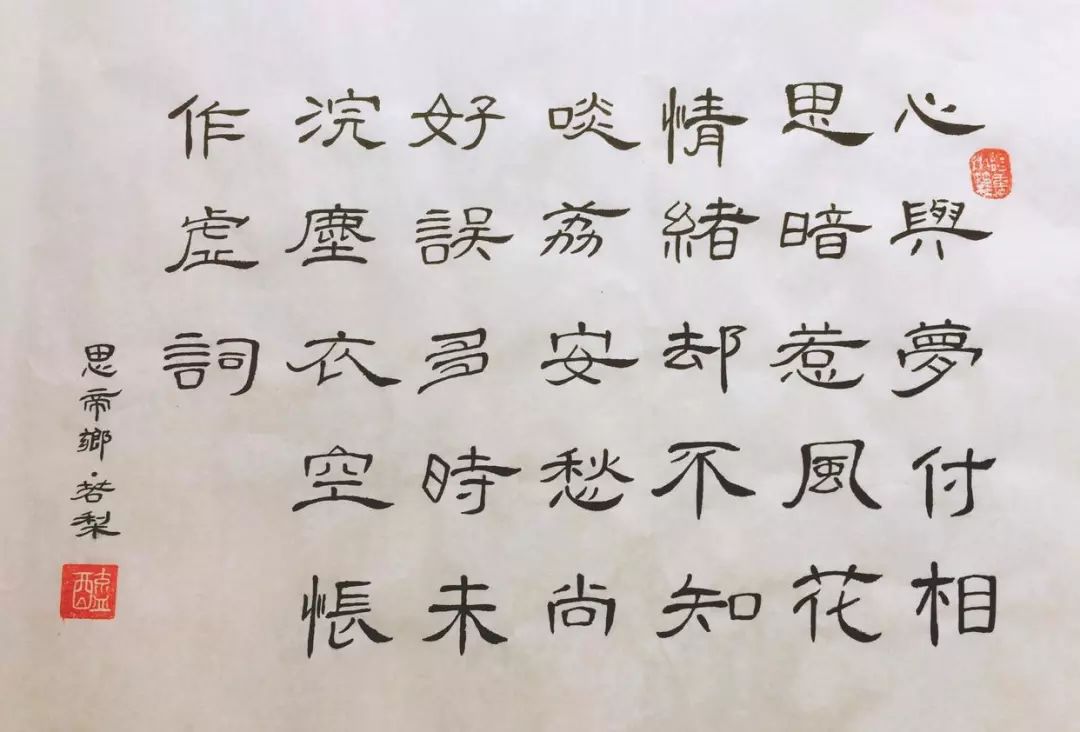 心與夢付相
思暗惹風花
情緒却不知
啖荔安愁尚
好誤多時未
浣塵衣空悵
作虛詞
思帝鄉·若梨